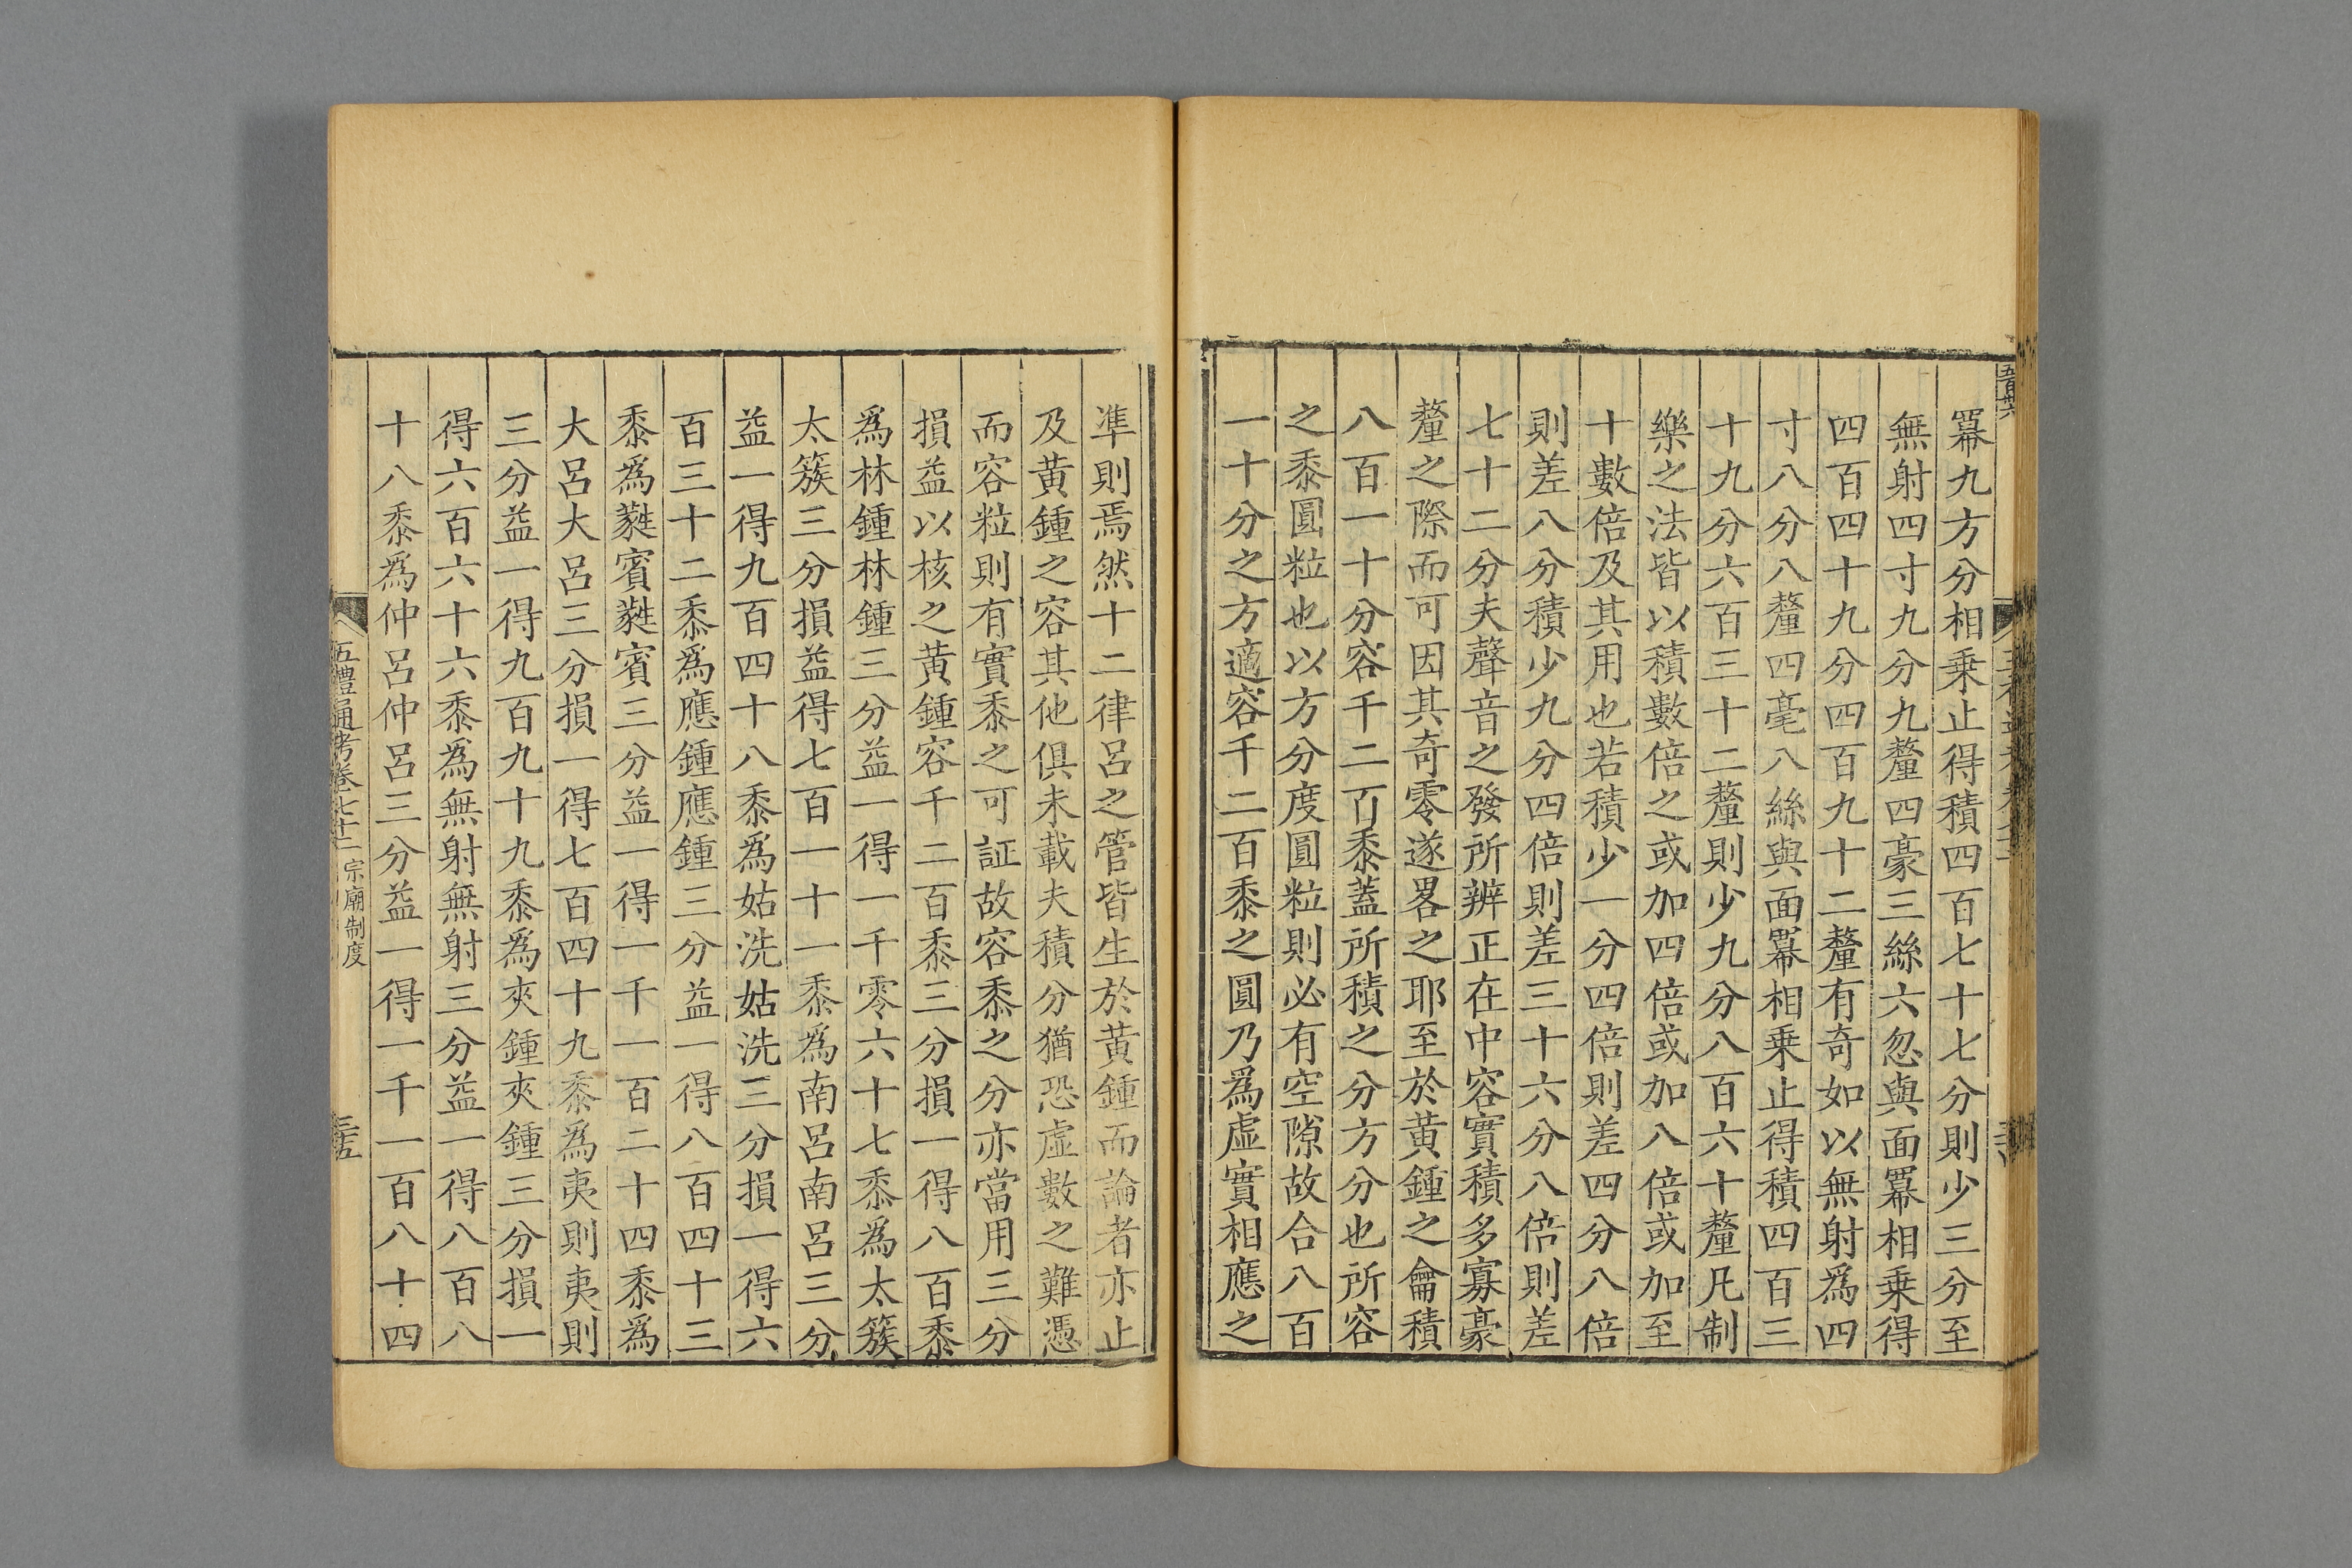 冪九方分相乗止得積四百七十七分則少三分至
無射四寸九分九釐四豪三絲六忽與面冪相乗得
四百四十九分四百九十二釐有奇如以無射爲四
寸八分八釐四毫八絲與面冪相乗止得積四百三
十九分六百三十二釐則少九分八百六十釐凡制
樂之法皆以積數倍之或加四倍或加八倍或加至
十數倍及其用也若積少一分四倍則差四分八倍
則差八分積少九分四倍則差三十六分八倍則差
七十二分夫聲音之發所辨正在中容實積多寡豪
釐之際而可因其奇零遂畧之耶至於黄鍾之龠積
八百一十分容千二百黍蓋所積之分方分也所容
之黍圓粒也以方分度圓粒則必有空隙故合八百
一十分之方適容千二百黍之圓乃爲虛實相應之
準則焉然十二律呂之管皆生於黃鍾而論者亦止
及黃鍾之容其他俱未載夫積分猶恐虛數之難憑
而容粒則有實黍之可証故容黍之分亦當用三分
損益以核之黃鍾容千二百黍三分損一得八百黍
爲林鍾林鍾三分益一得一千零六十七黍爲太簇
太簇三分損益得七百一十一黍爲南呂南呂三分
益一得九百四十八黍爲姑洗姑洗三分損一得六
百三十二黍爲應鍾應鍾三分益一得八百四十三
黍爲蕤賓蕤賓三分益一得一千一百二十四黍爲
大呂大呂三分損一得七百四十九黍爲夷則夷則
三分益一得九百九十九黍爲夾鍾夾鍾三分損一
得六百六十六黍爲無射無射三分益一得八百八
十八黍爲仲呂仲呂三分益一得一千一百八十四
五禮通考卷七十二 宗廟制度